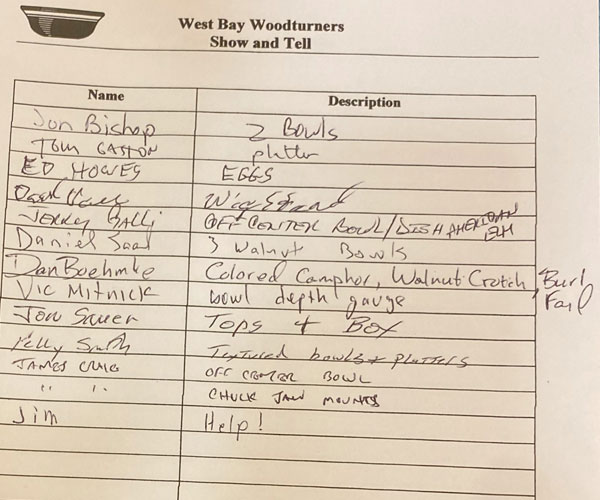 West Bay Woodturners
Show and Tell
Name Description
Jon Bishop 2 Bowls
Tom Gaston platter
ED HOWES EGGS
Wig Stand
JERRY GALLI OFF CENTER BOWL/DISH AMERICAN ELM
Daniel Saal 3 Walnut Bowls
Dan Boehmke Colored Camphor, Walnut Crotch, Burl Fail
Vic Mitnick bowl depth gauge
Jon Sauer Tops + Box
Kelly Smith Textured bowls + platters
JAMES CRAIG OFF CENTER BOWL
" " CHUCK JAW MOUNTS
Jim Help!